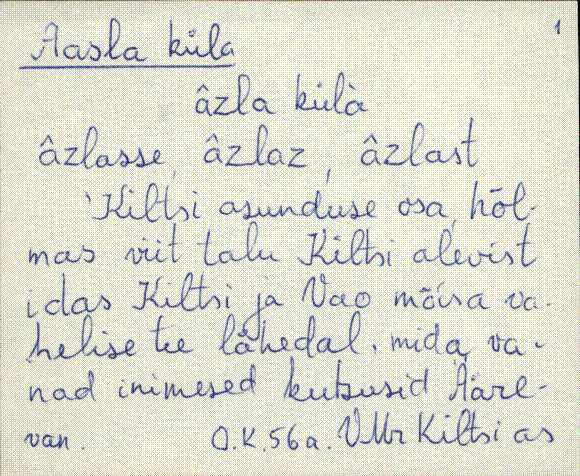 1
Aasla küla
âzla külà
âzlasse, âzlaz, âzlast
'Kiltsi asunduse osa, hõl-
mas viit talu Kiltsi alevist
idas Kiltsi ja Vao mõisa va-
helise tee lähedal, mida va-
nad inimesed kutsusidÄäre-
van. O.K. 56a. VMr Kiltsi as